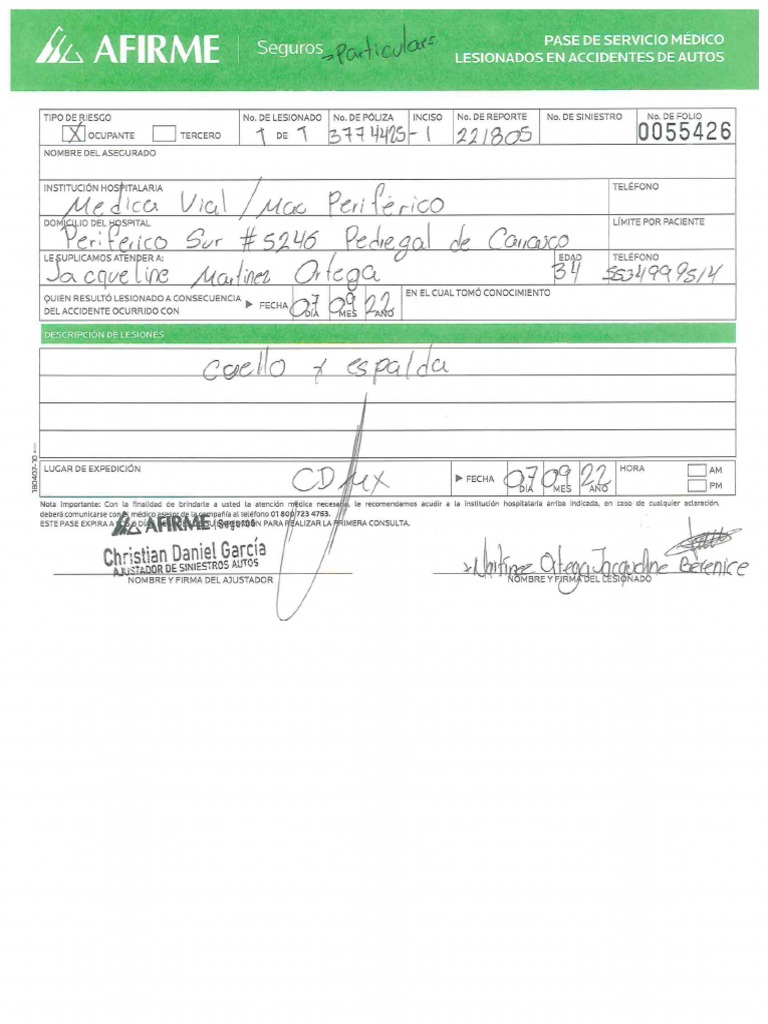 AFIRME Seguros Particular
PASE DE SERVICIO MÉDICO
LESIONADOS EN ACCIDENTES DE AUTOS
TIPO DE RIESGO
X OCUPANTE TERCERO
No. DE LESIONADO
1 DE 1
No. DE PÓLIZA
3774425-1
INCISO
No. DE REPORTE
221805
No. DE SINIESTRO
No. DE FOLIO
0055426
NOMBRE DEL ASEGURADO
INSTITUCIÓN HOSPITALARIA
Medica Vial / Mac Periférico
TELÉFONO
DOMICILIO DEL HOSPITAL
Periferico Sur #5246 Pedregal de Carrasco
LÍMITE POR PACIENTE
LE SUPLICAMOS ATENDER A:
Jacqueline Martinez Ortega
EDAD
34
TELÉFONO
5534999514
QUIEN RESULTÓ LESIONADO A CONSECUENCIA
DEL ACCIDENTE OCURRIDO CON
FECHA 07 09 22
DÍA MES AÑO
EN EL CUAL TOMÓ CONOCIMIENTO
DESCRIPCIÓN DE LESIONES
Cuello y espalda
LUGAR DE EXPEDICIÓN
CDMX
FECHA 07 09 22
DÍA MES AÑO
HORA
AM
PM
Nota Importante: Con la finalidad de brindarle a usted la atención médica necesaria, le recomendamos acudir a la institución hospitalaria arriba indicada, en caso de cualquier aclaración,
deberá comunicarse con el médico asesor de la compañía al teléfono 01 800 723 4763.
ESTE PASE EXPIRA A LOS DÍAS DE SU EXPEDICIÓN PARA REALIZAR LA PRIMERA CONSULTA.
AFIRME Seguros
Christian Daniel García
AJUSTADOR DE SINIESTROS AUTOS
NOMBRE Y FIRMA DEL AJUSTADOR
Martinez Ortega Jacqueline Berenice
NOMBRE Y FIRMA DEL LESIONADO